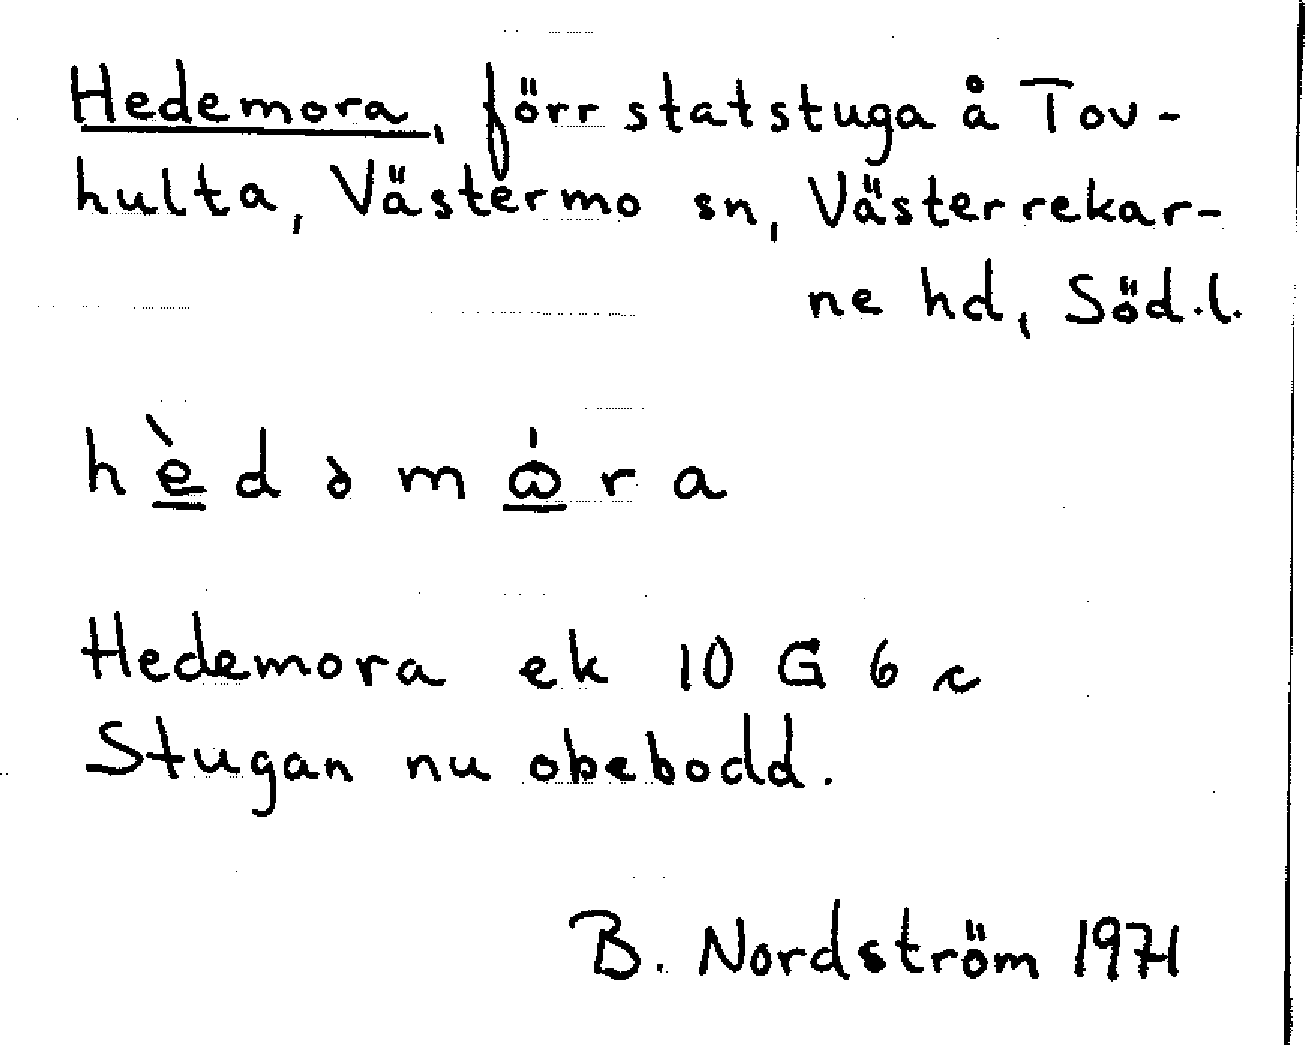 Hedemora, förr statstuga å Tov-
hulta, Västermo sn, Västerrekar-
ne hd, Söd.l.
hèdəmώra
Hedemora ek 10 G 6 c
Stugan nu obebodd.
B. Nordström 1971